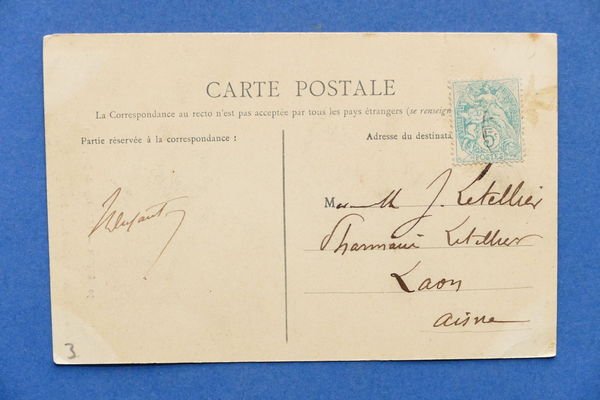 CARTE POSTALE
La Correspondance au recto n'est pas acceptée par tous les pays étrangers (se renseign
Partie réservée à la correspondance :
Adresse du destinata
5c
POSTES
M J. Letellier
Pharmacie Letellier
Laon
Aisne
3